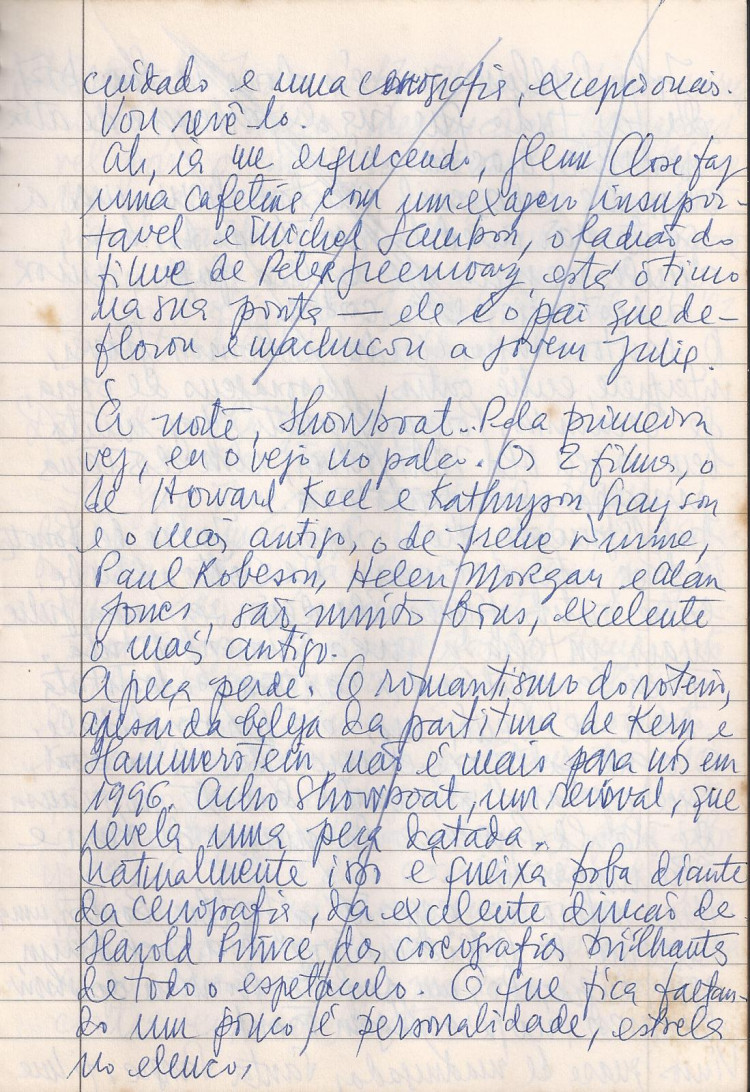 cuidado e uma cenografia, excepcionais.
Vou revê-lo.
Ah, ia me esquecendo, Glenn Close faz
uma cafetina com um exagero insupor-
tavel e Michel Gambon, o ladrão do
filme de Peter Greenway, está ótimo
na sua ponta — ele é o pai que de-
florou e machucou a jovem Julie.
À noite, Showboat. Pela primeira
vez, eu o vejo no palco. Os 2 filmes, o
de Howard Keel e Kathryson Grayson
e o mais antigo, o de Irene Dunne,
Paul Robeson, Helen Moregan e Alan
Jones são muito bons, excelente
o mais antigo.
A peça perde. O romantismo do roteiro,
apesar da beleza da partitura de Kern e
Hammerstein não é mais para nós em
1996. Acho Showboat, um revival, que
revela uma peça datada.
Naturalmente isso é queixa boba diante
da cenografia, da excelente direcão de
Harold Prince, das coreografias brilhantes
de todo o espetaculo. O que fica faltan-
do um pouco é personalidade, estrela
no elenco.